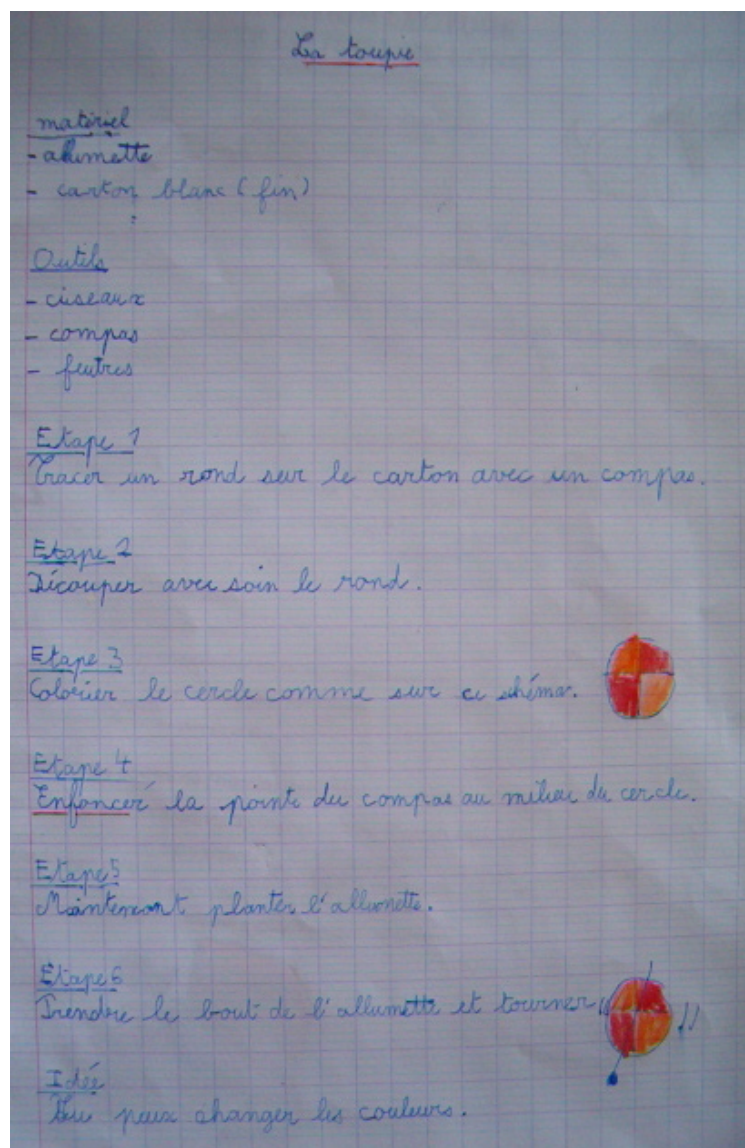 La toupie
matériel
- alumette
- carton blanc (fin)
Outils
- ciseaux
- compas
- feutres
Etape 1
Tracer un rond sur le carton avec un compas.
Etape 2
Découper avec soin le rond.
Etape 3
Colorier le cercle comme sur ce schéma.
Etape 4
Enfoncer la pointe du compas au milieu du cercle.
Etape 5
Maintenant planter l'allumette.
Etape 6
Prendre le bout de l'allumette et tourner
Idée
Tu peux changer les couleurs.